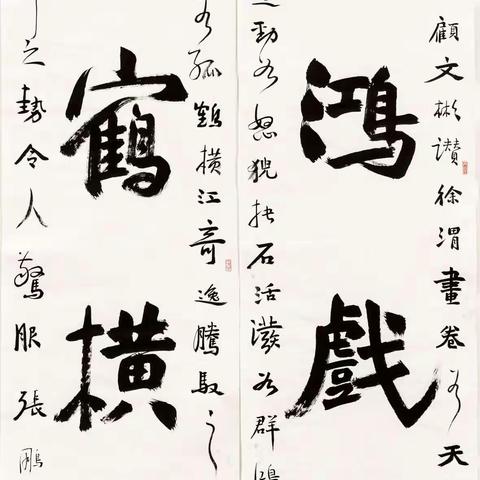 顧文彬讚徐渭畫卷如天
鴻戲
勁如怒猊抉石活潑如群鴻
如孤鶴橫江奇逸騰馭之
鶴橫
之勢令人驚服張鵬